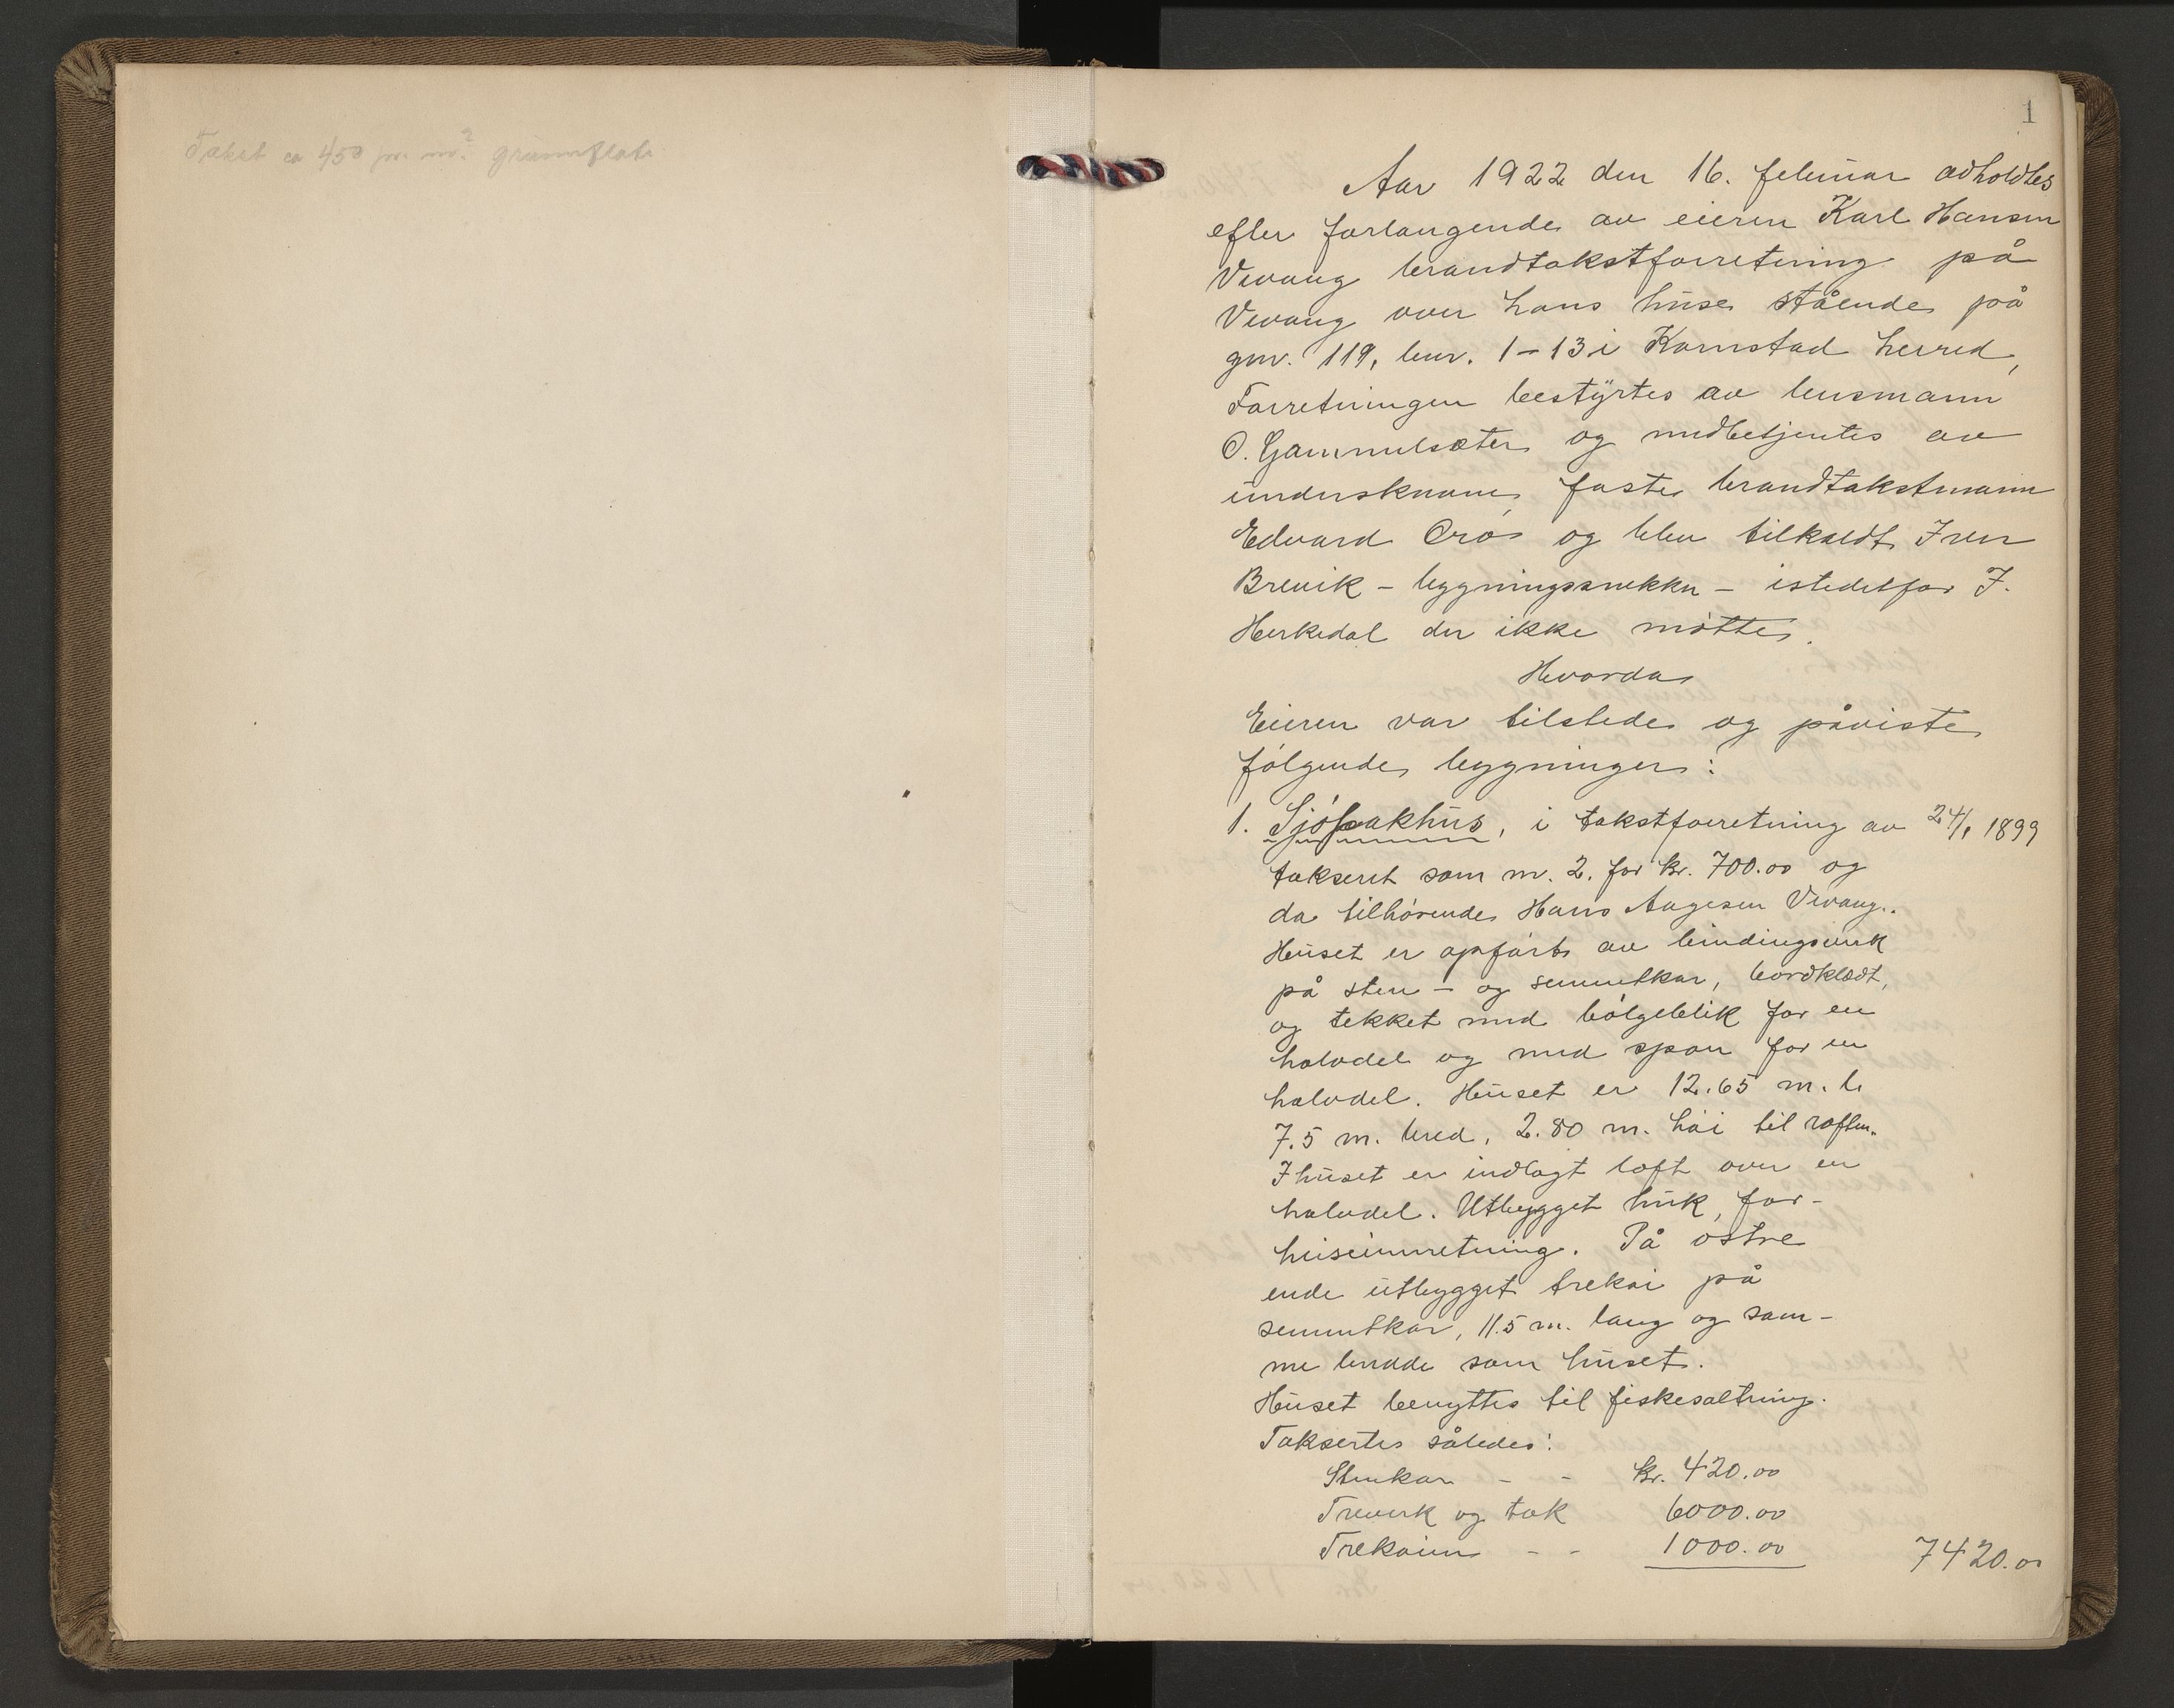 Takst ca 450 pr. m² grunnflate
1
Aar 1922 den 16. februar avholdtes
efter forlangende av eieren Karl Hansen
Vevang brandtakstforretning på
Vevang over hans huse stående på
gnr. 119, bnr. 1-13 i Kornstad herred,
Forretningen bestyrtes av lensmann
O. Gammelsæter og medbetjentes av
underskrevne faste brandtakstmann
Edvard Orø og blev tilkaldt Iver
Brevik - bygningssnekker - istedetfor J.
Herkedal der ikke møtte.
Hvorda
Eieren var tilstede og påviste
følgende bygninger:
1. Sjøpakhus, i takstforretning av 24/1 1899
taksert som nr. 2. for kr. 700.00 og
da tilhørende Hans Aagesen Vevang.
Huset er opført av bindingsverk
på sten - og sementkar, bordklædt,
og tekket med bølgeblik for en
halvdel og med spon for en
halvdel. Huset er 12.65 m. l.
7.5 m. bred, 2.80 m. høi til raften.
I huset er indlagt loft over en
halvdel. Utbygget huk, for-
husinnretning. På østre
ende utbygget trekai på
sementkar, 11.5 m. lang og sam-
me bredde som huset.
Huset benyttes til fiskesaltning.
Taksertes således:
Stenkar - - kr. 420.00
Treverk og tak 6000.00
Trekaien - - 1000.00 7420.00